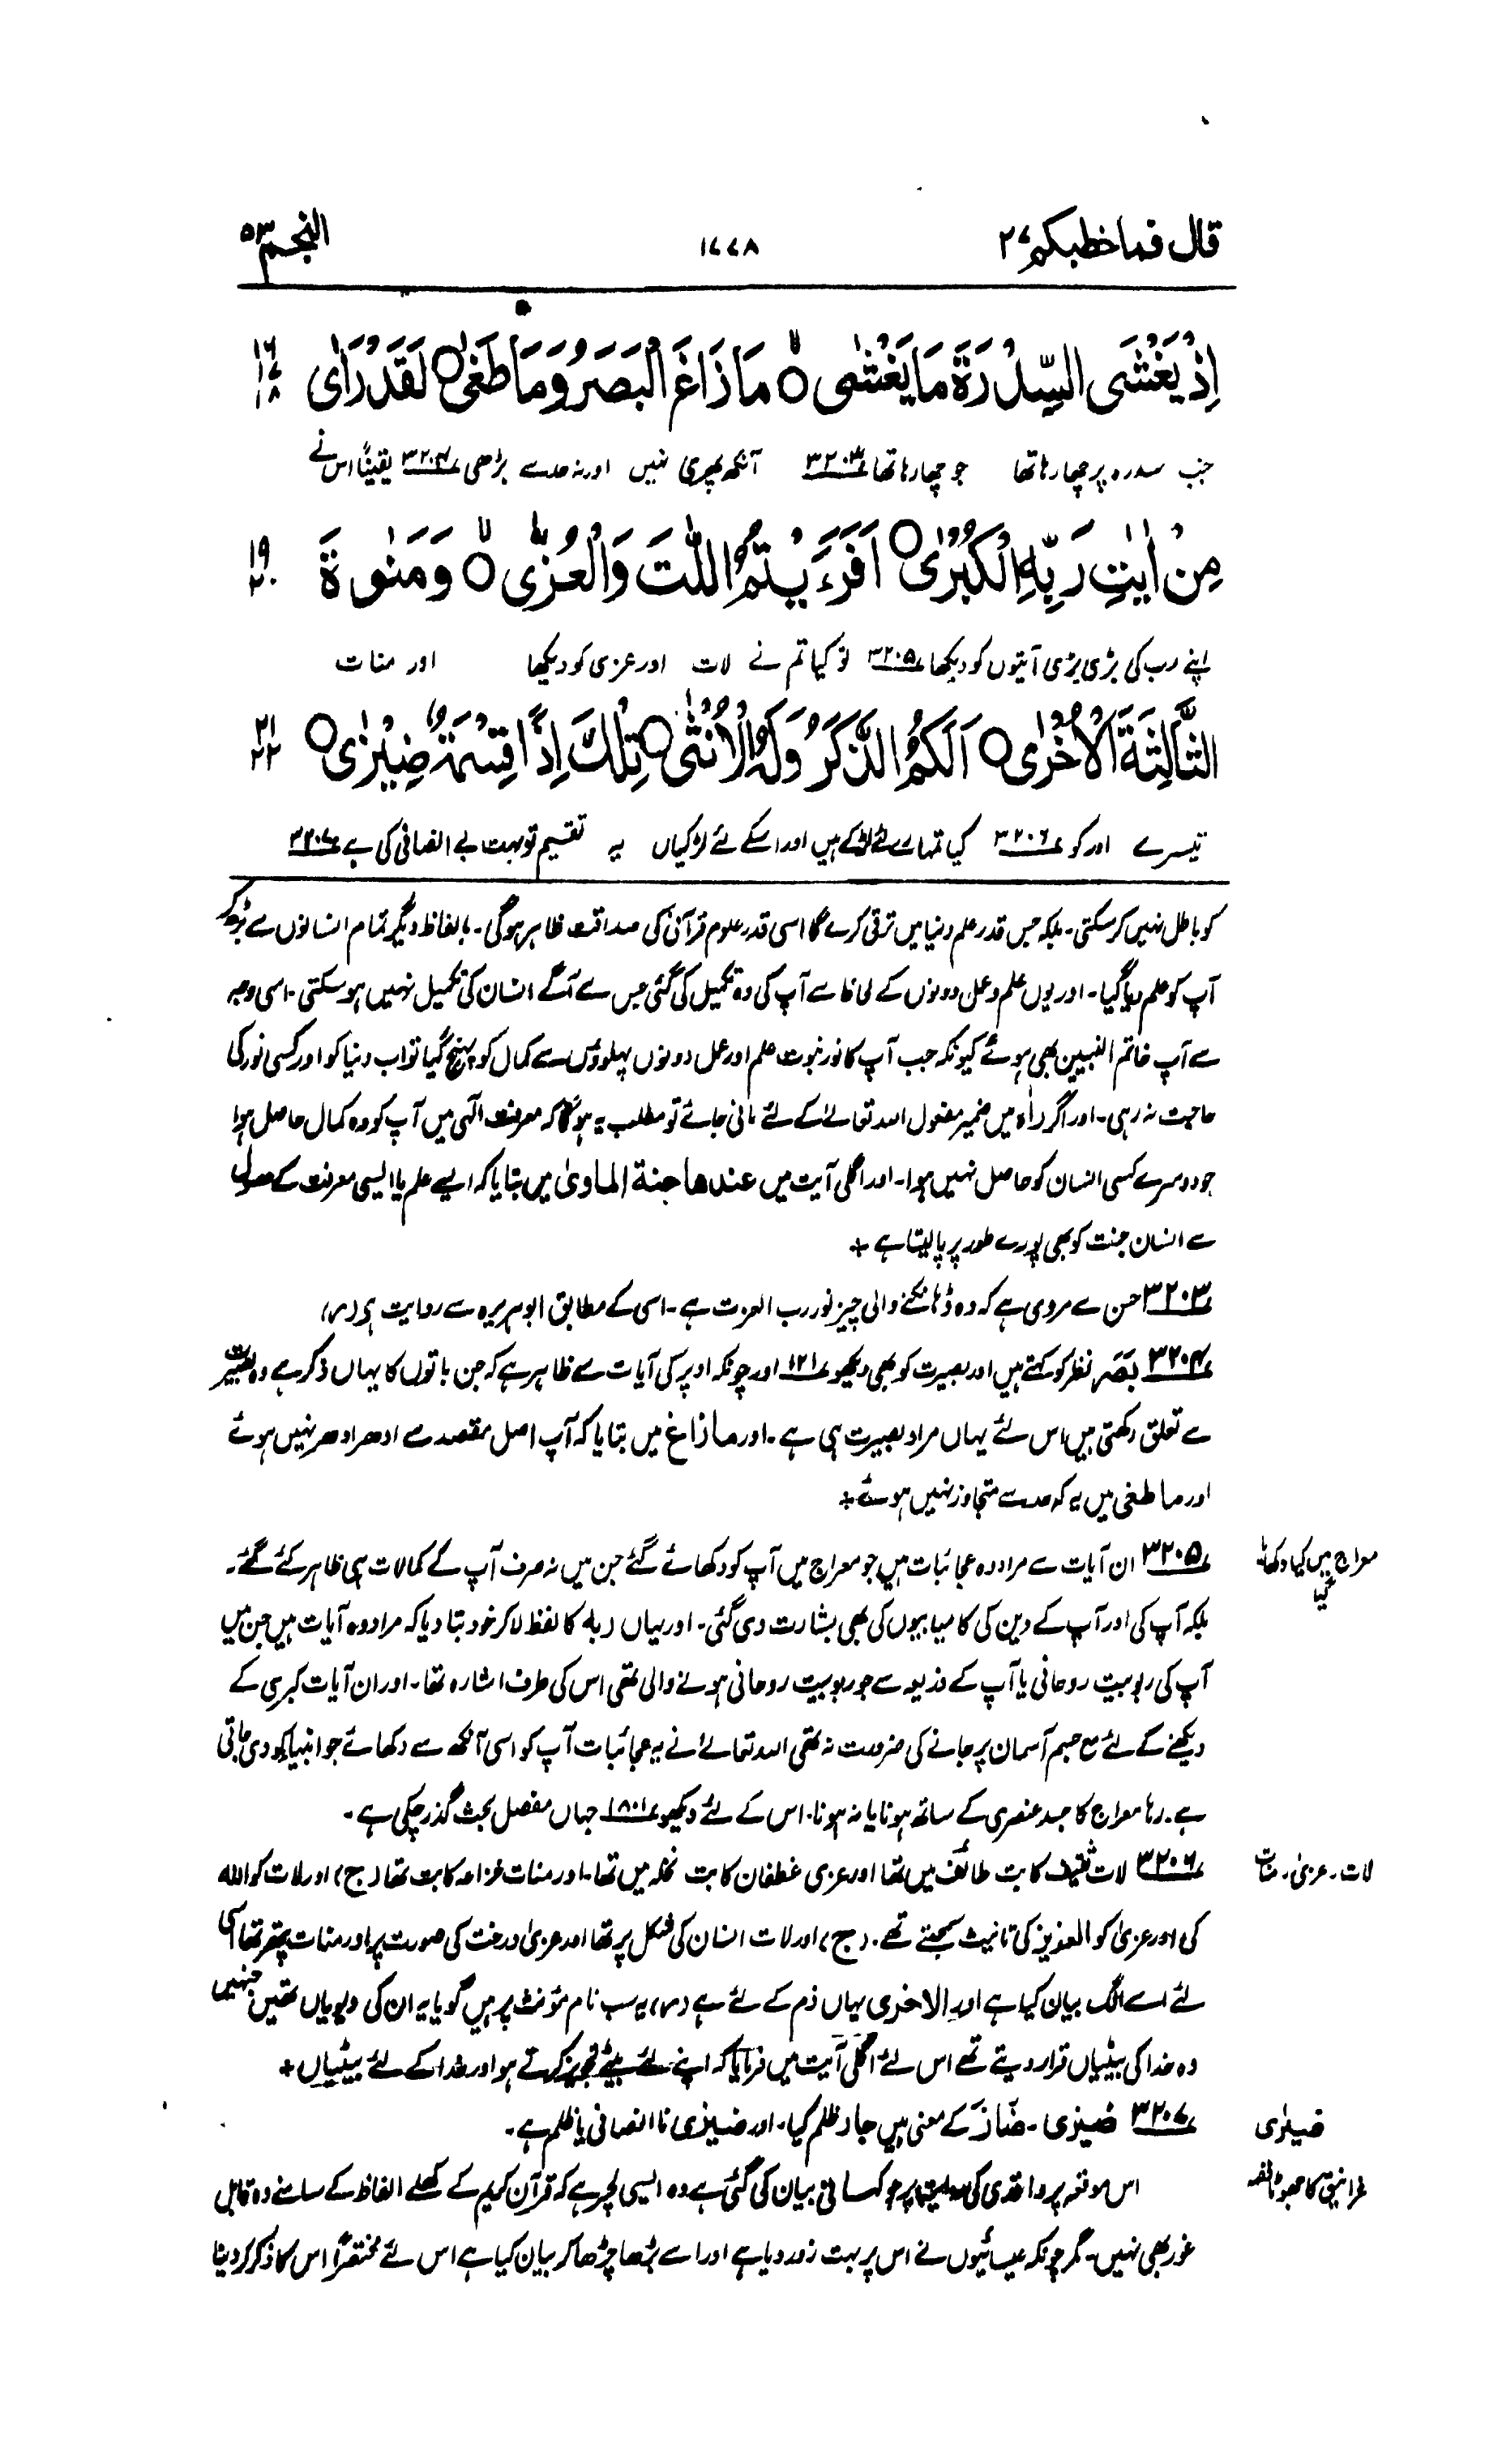 قال فما خطبکم ۲۷
۱۷۷۸
النجم ۵۳
اِذْ یَغْشَی السِّدْرَةَ مَا یَغْشٰی ۙ مَا زَاغَ الْبَصَرُ وَمَا طَغٰی ○ لَقَدْ رَاٰی
۱۶ ۱۷ ۱۸
جب سدرہ پر چھا رہا تھا جو چھا رہا تھا ۳۲۰۳ آنکھ پھری نہیں اور نہ حد سے بڑھی ۳۲۰۴ یقیناً اس نے
مِنْ اٰیٰتِ رَبِّهِ الْکُبْرٰی ○ اَفَرَءَیْتُمُ اللّٰتَ وَالْعُزّٰی ۙ وَمَنٰوةَ
۱۹ ۲۰
اپنے رب کی بڑی بڑی آیتوں کو دیکھا ۳۲۰۵ تو کیا تم نے لات اور عزی کو دیکھا اور منات
الثَّالِثَةَ الْاُخْرٰی ○ اَلَکُمُ الذَّکَرُ وَلَهُ الْاُنْثٰی ○ تِلْكَ اِذًا قِسْمَةٌ ضِیْزٰی ○
۲۱ ۲۲
تیسرے اور کو ۳۲۰۶ کیا تمہارے لئے لڑکے ہیں اور اسکے لئے لڑکیاں یہ تقسیم تو بہت بے انصافی کی ہے ۳۲۰۷
کو باطل نہیں کر سکتی۔ بلکہ جس قدر علم دنیا میں ترقی کرے گا اسی قدر علوم قرآنی کی صداقت ظاہر ہوگی۔ بالفاظ دیگر تمام انسانوں سے بڑھ کر
آپ کو علم دیا گیا۔ اور یوں علم و عمل دونوں کے لحاظ سے آپ کی وہ تکمیل کی گئی جس سے آگے انسان کی تکمیل نہیں ہو سکتی۔ اسی وجہ
سے آپ خاتم النبیین بھی ہوئے کیونکہ جب آپ کا نور نبوت علم اور عمل دونوں پہلوؤں سے کمال کو پہنچ گیا تو اب دنیا کو اور کسی نور کی
حاجت نہ رہی۔ اور اگر راٰہ میں ضمیر مفعول اللہ تعالےٰ کے لئے مانی جائے تو مطلب یہ ہوگا کہ معرفت الٰہی میں آپ کو وہ کمال حاصل ہوا
جو دوسرے کسی انسان کو حاصل نہیں ہوا۔ اور اگلی آیت میں عندھا جنة الماویٰ میں بتایا کہ ایسے علم یا ایسی معرفت کے حصول
سے انسان جنت کو بھی پورے طور پر پا لیتا ہے +
۳۲۰۳ حسن سے مروی ہے کہ وہ ڈھانکنے والی چیز نور رب العزت ہے۔ اسی کے مطابق ابوہریرہ سے روایت ہے (ر)
۳۲۰۴ بَصَر نظر کو کہتے ہیں اور بصیرت کو بھی دیکھو ۱۲۱ اور چونکہ اوپر کی آیات سے ظاہر ہے کہ جن باتوں کا یہاں ذکر ہے وہ بصیرت
سے تعلق رکھتی ہیں اس لئے یہاں مراد بصیرت ہی ہے۔ اور ما زاغ میں بتایا کہ آپ اصل مقصد سے ادھر ادھر نہیں ہوئے
اور ما طغی میں یہ کہ حد سے متجاوز نہیں ہوئے +
معراج میں کیا دکھایا گیا
۳۲۰۵ ان آیات سے مراد وہ عجائبات ہیں جو معراج میں آپ کو دکھائے گئے جن میں نہ صرف آپ کے کمالات ہی ظاہر کئے گئے۔
بلکہ آپ کی اور آپ کے دین کی کامیابیوں کی بھی بشارت دی گئی۔ اور یہاں ربہ کا لفظ لا کر خود بتا دیا کہ مراد وہ آیات ہیں جن میں
آپ کی ربوبیت روحانی یا آپ کے ذریعہ سے جو ربوبیت روحانی ہونے والی تھی اس کی طرف اشارہ تھا۔ اور ان آیات کبری کے
دیکھنے کے لئے مع جسم آسمان پر جانے کی ضرورت نہ تھی اللہ تعالےٰ نے یہ عجائبات آپ کو اسی آنکھ سے دکھائے جو انبیا کو دی جاتی
ہے۔ رہا معراج کا جسد عنصری کے ساتھ ہونا یا نہ ہونا۔ اس کے لئے دیکھو ۱۸۰۱ جہاں مفصل بحث گذر چکی ہے۔
لات۔ عزیٰ۔ منات
۳۲۰۶ لات ثقیف کا بت طائف میں تھا اور عزی غطفان کا بت نخلہ میں تھا۔ اور منات خزاعہ کا بت تھا (ج) اور لات کو اللہ
کی اور عزیٰ کو العزیز کی تانیث سمجھتے تھے۔ (ج) اور لات انسان کی شکل پر تھا اور عزیٰ درخت کی صورت پر اور منات پتھر تھا اسی
لئے اسے الگ بیان کیا ہے اور الاخری یہاں ذم کے لئے ہے (ر) یہ سب نام مؤنث پر ہیں گویا یہ ان کی دیویاں تھیں جنہیں
وہ خدا کی بیٹیاں قرار دیتے تھے اس لئے اگلی آیت میں فرمایا کہ اپنے لئے بیٹے تجویز کرتے ہو اور خدا کے لئے بیٹیاں +
ضیزٰی
۳۲۰۷ ضیزی۔ ضَازَ کے معنی ہیں جار ظلم کیا۔ اور ضیزی نا انصافی یا ظلم ہے۔
غرانیق کا جھوٹا قصہ
اس موقعہ پر واقدی کی روایت پر جو کہانی بیان کی گئی ہے وہ ایسی لچر ہے کہ قرآن کریم کے کھلے الفاظ کے سامنے وہ قابل
غور بھی نہیں۔ مگر چونکہ عیسائیوں نے اس پر بہت زور دیا ہے اور اسے بڑھا چڑھا کر بیان کیا ہے اس لئے مختصراً اس کا ذکر کر دینا